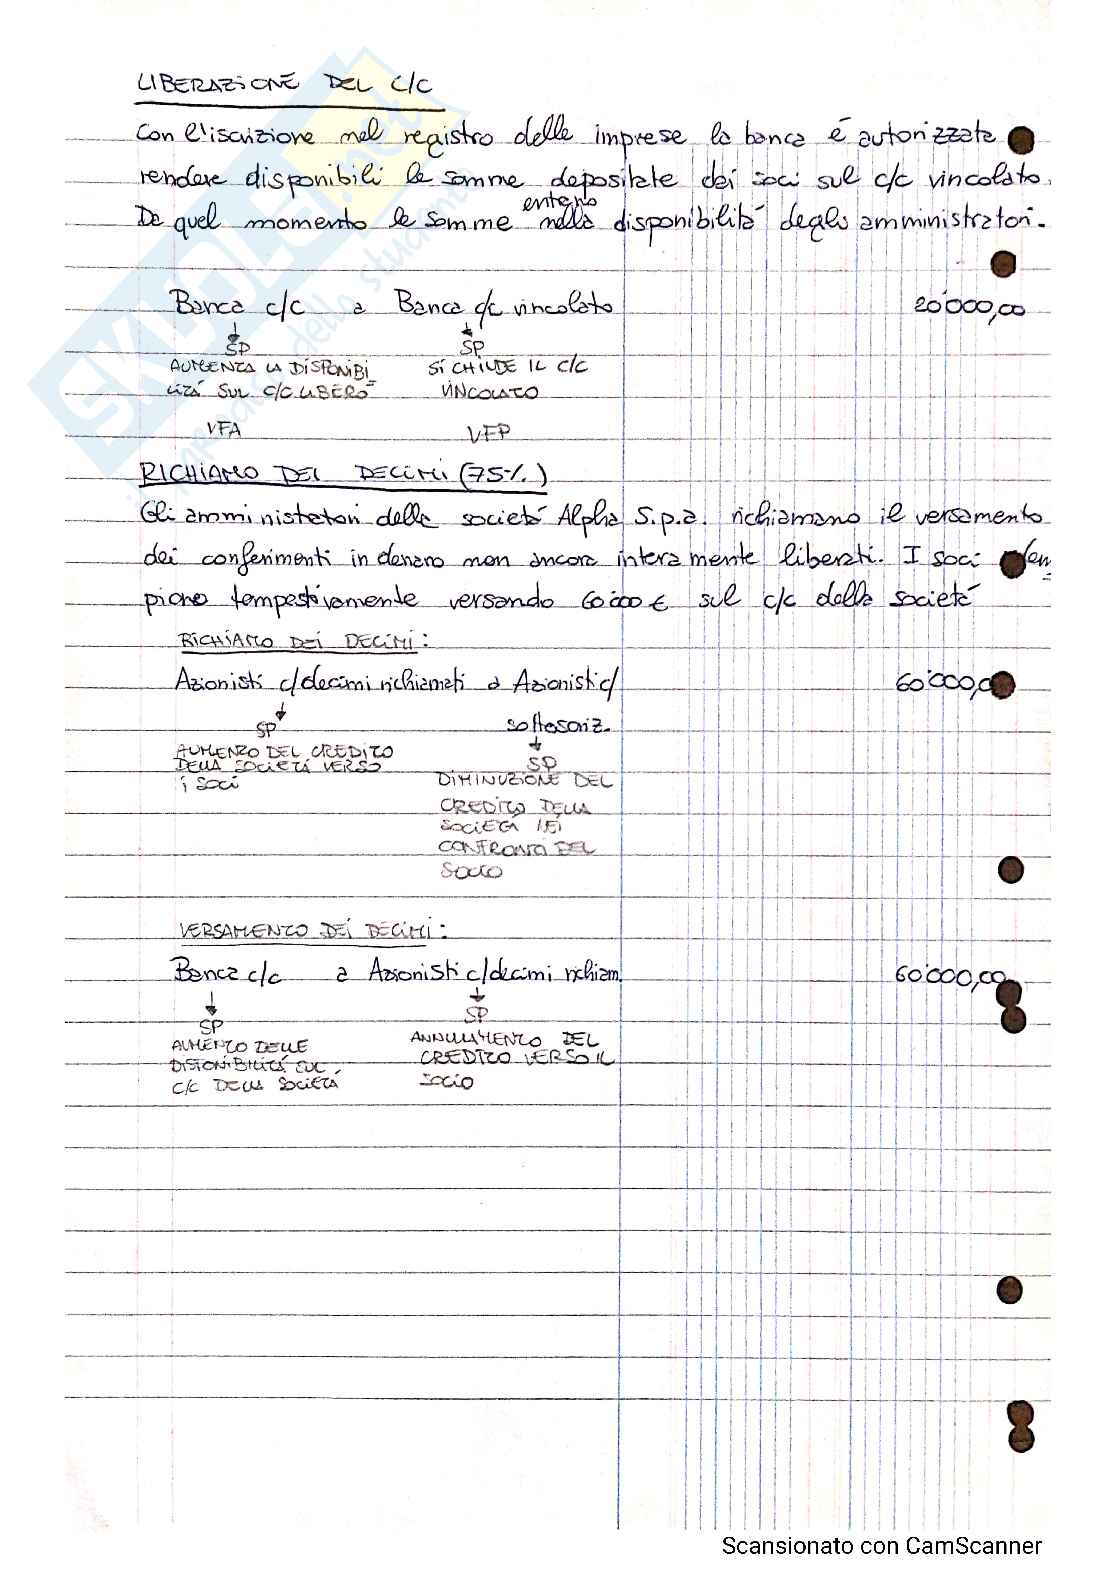 LIBERAZIONE DEL C/C
Con l'iscrizione nel registro delle imprese la banca é autorizzata
rendere disponibili le somme depositate dai soci sul c/c vincolato.
Da quel momento le somme entrano nella disponibilitá degli amministratori.
Banca c/c a Banca c/c vincolato 20'000,00
SP SP
AUMENTA LA DISPONIBI SI CHIUDE IL C/C
LITÁ SUL C/C LIBERO VINCOLATO
VFA VFP
RICHIAMO DEI DECIMI (75%)
Gli amministratori della societá Alpha S.p.a. richiamano il versamento
dei conferimenti in denaro non ancora interamente liberati. I soci
piono tempestivamente versando 60'000 € sul c/c della societá
RICHIAMO DEI DECIMI:
Azionisti c/decimi richiamati a Azionisti c/ 60'000,00
SP sottoscriz.
AUMENTO DEL CREDITO SP
DELLA SOCIETÁ VERSO DIMINUZIONE DEL
i SOCI CREDITO DELLA
SOCIETÁ NEI
CONFRONTI DEL
SOCIO
VERSAMENTO DEI DECIMI:
Banca c/c a Azionisti c/decimi richiam. 60'000,00
SP SP
AUMENTO DELLE ANNULLAMENTO DEL
DISPONIBILITÁ SUL CREDITO VERSO IL
C/C DELLA SOCIETÁ SOCIO
SKUOLA.net
il paradiso dello studente
Scansionato con CamScanner